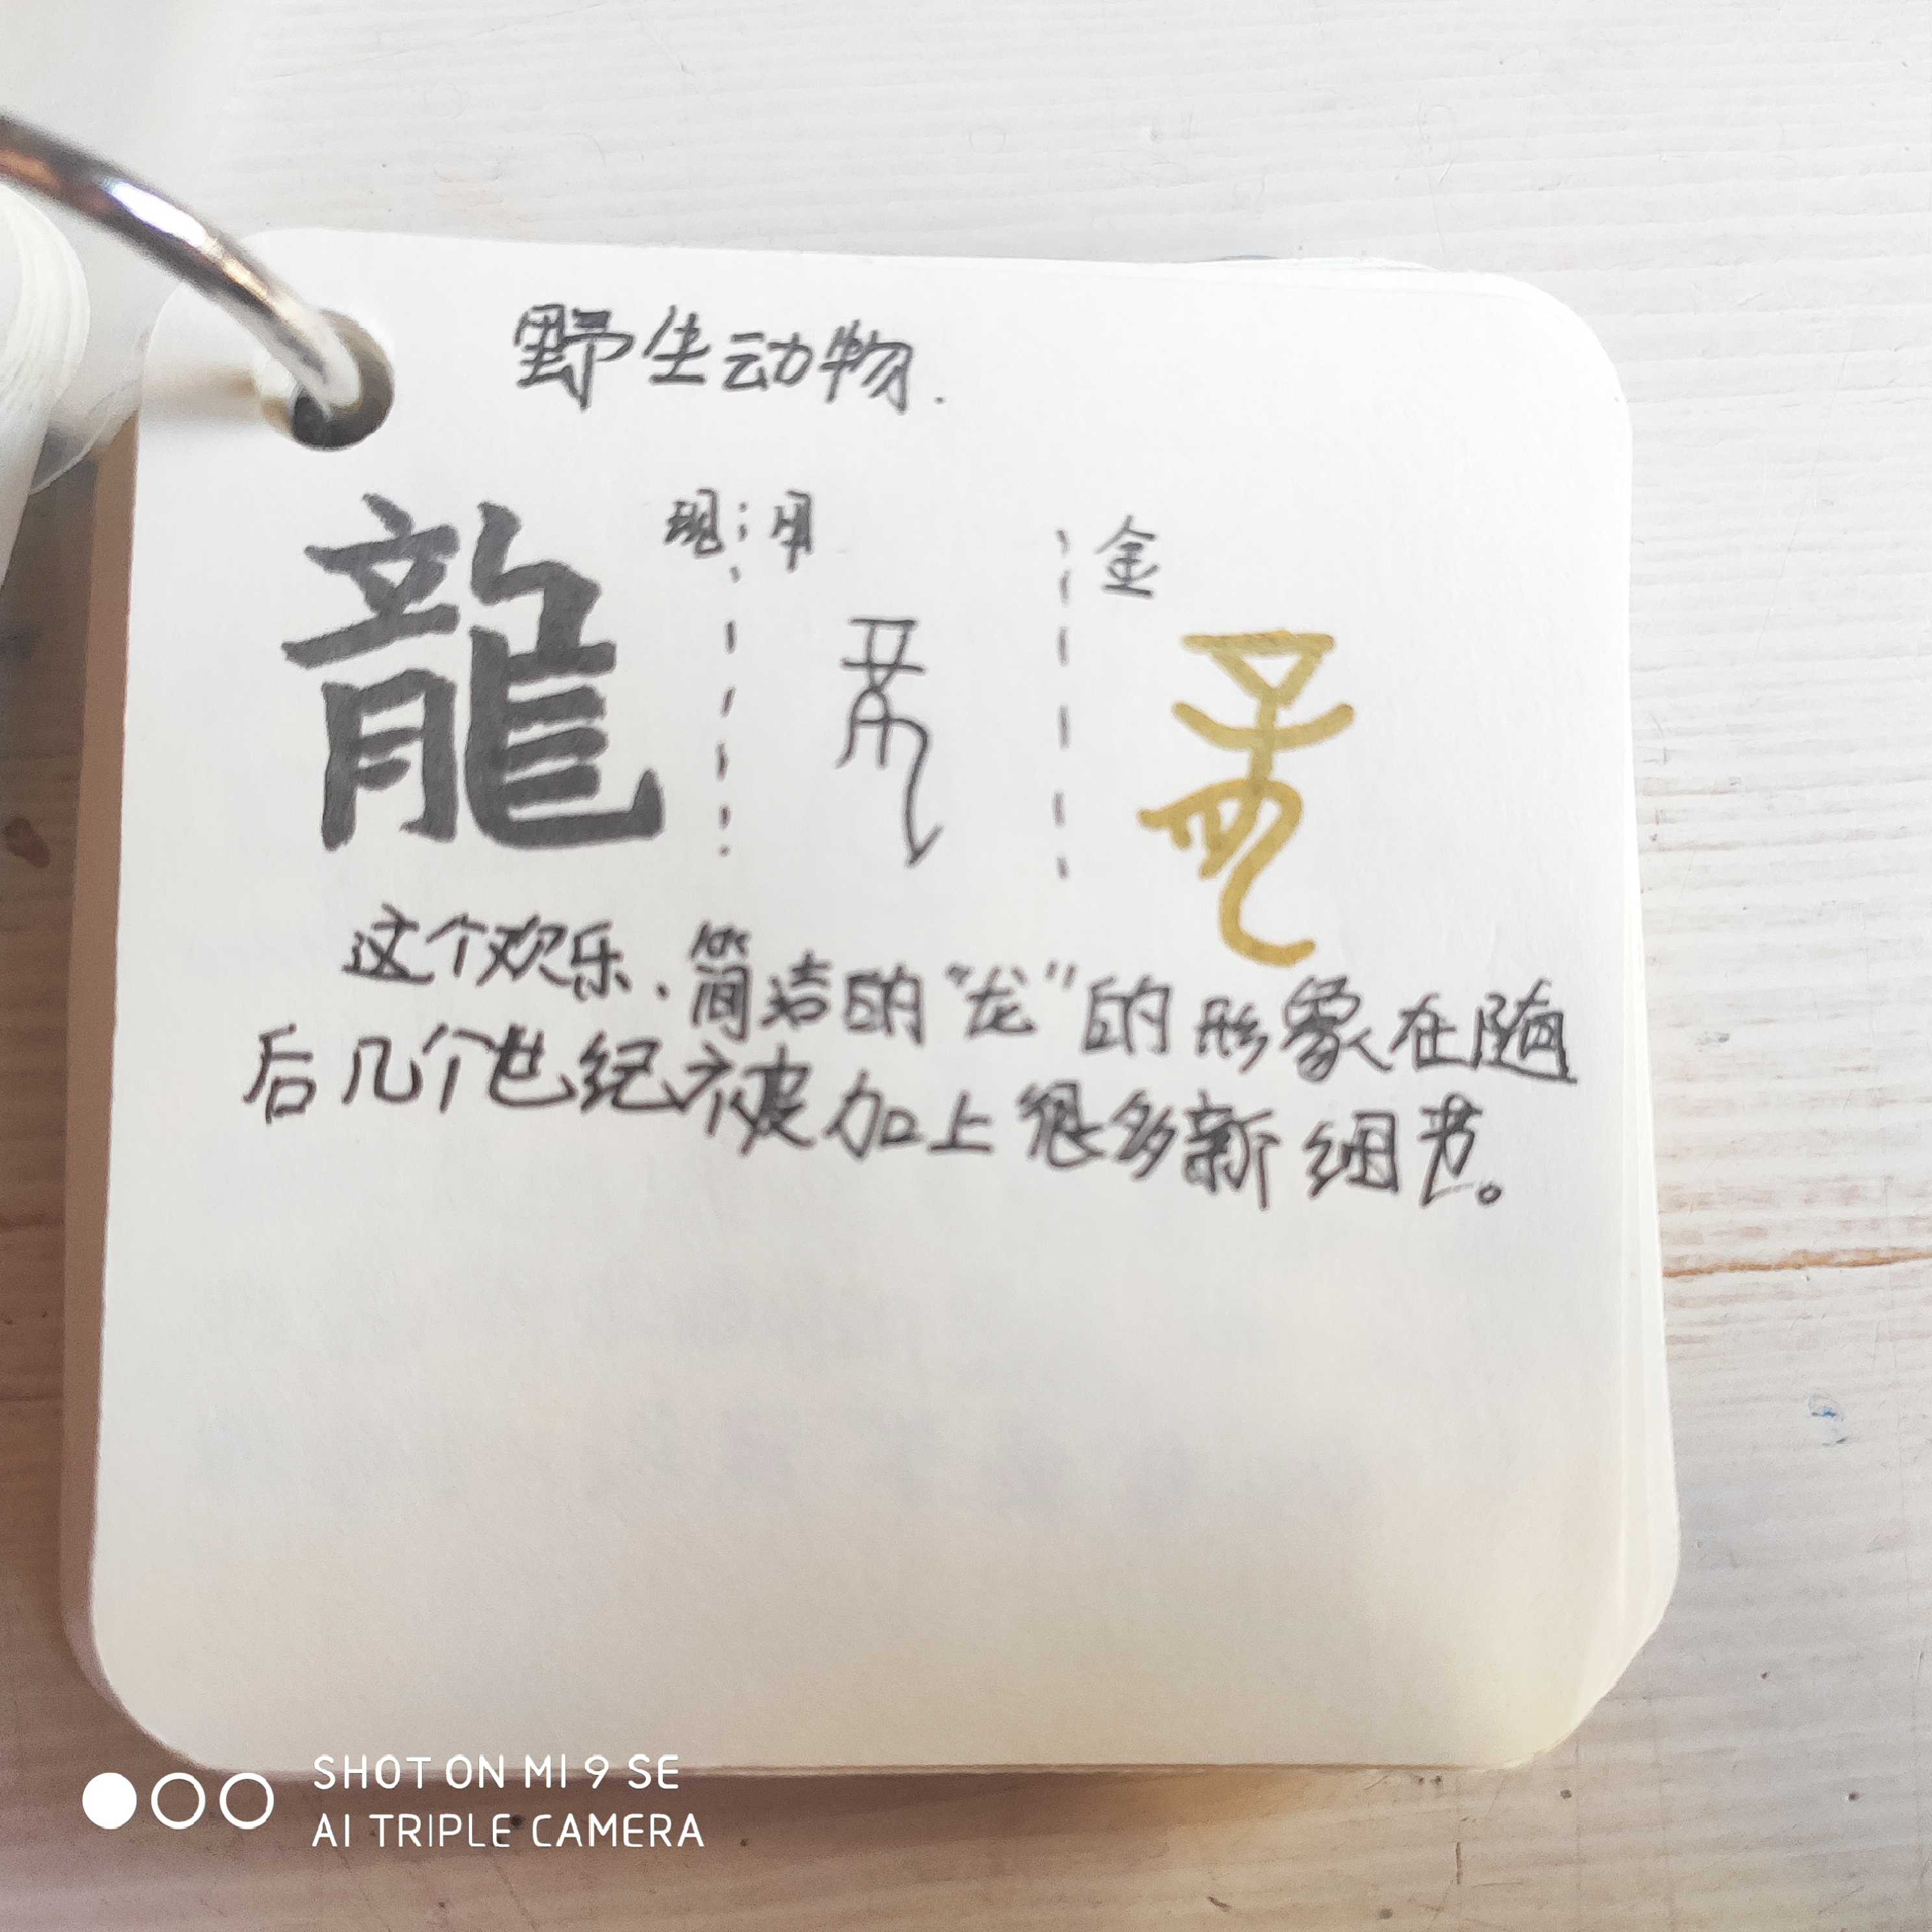 野生动物.
龍 现 甲 金
这个欢乐、简洁的“龙”的形象在随
后几个世纪被加上很多新细节。
SHOT ON MI 9 SE
AI TRIPLE CAMERA